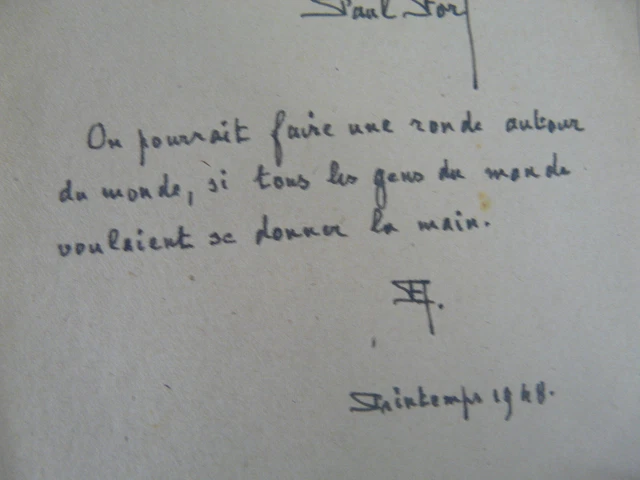 Paul Fort
On pourrait faire une ronde autour
du monde, si tous les gens du monde
voulaient se donner la main.
Printemps 1948.